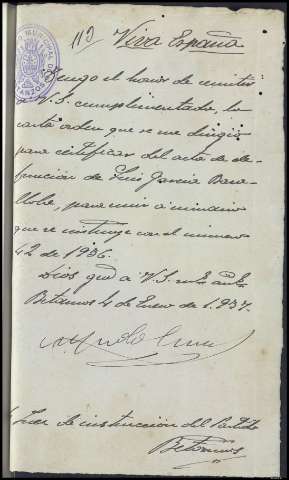 112 Viva España
Tengo el honor de remitir
a V.S. cumplimentada, la
carta orden que se me dirigió
para certificar del acta de de-
función de Luis García Bara-
llobre, para unir a sumario
que se instruye con el número
42 de 1936.
Dios gud a V.S.
Betanzos 4 de Enero de 1.937.
Juez de instrucción del Partido
Betanzos